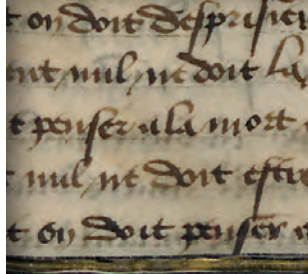 t on doit desprisier
ent nul ne doit la
t penser a la mort
nul ne doit estre
t on doit penser